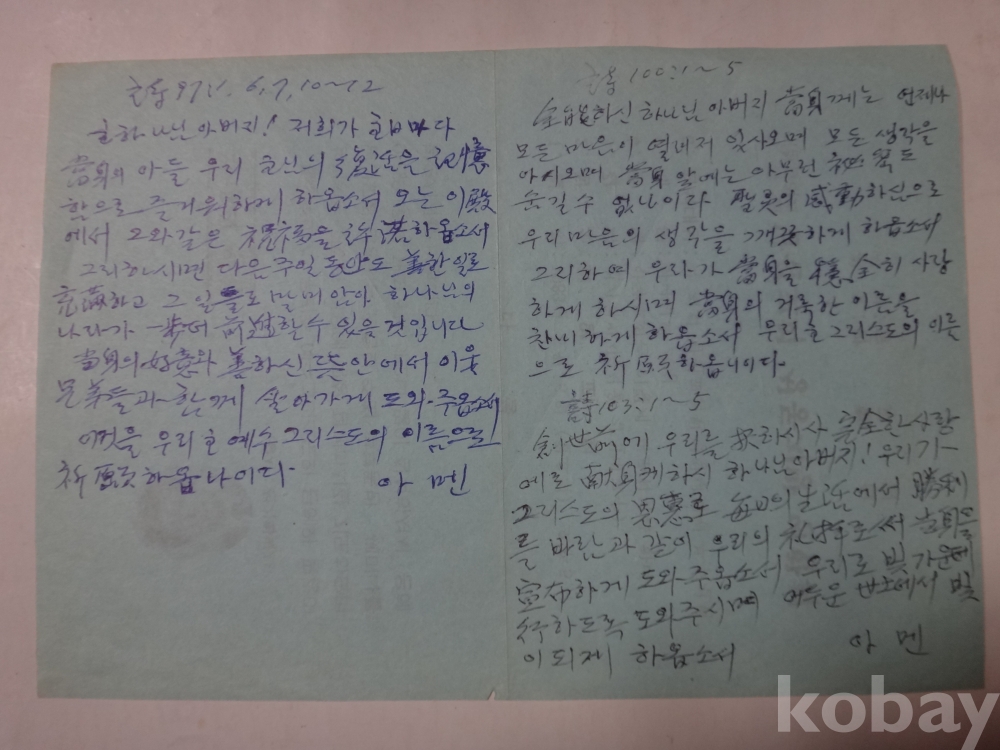 97:1. 6, 7, 10~12
하나님 아버지! 저희가 마다
當身의 아들 우리 의 復活을
함으로 즐거워하게 하옵소서 오는 이 殿
에서 그와같은 祝福을 許諾하옵소서
그리하시면 다음 주일 동안도 善한 일로
充滿하고 그 일들로 말미암아 하나님의
나라가 一步더 前進할 수 있을 것입니다
當身의 好意와 善하신 뜻안에서 이웃
들과 함께 살아가게 도와 주옵소서
이것을 우리 主 예수 그리스도의 이름으로
祈願하옵나이다.
아멘
100:1~5
全能하신 하나님 아버지 當身께는 언제나
모든 마음이 열려져 있사오며 모든 생각을
아시오며 當身 앞에는 아무런 秘密도
숨길 수 없나이다 聖灵의 感動하심으로
우리 마음의 생각을 하게 하옵소서
그리하여 우리가 當身을 穩全히 사랑
하게 하시며 當身의 거룩한 이름을
하게 하옵소서 우리 主 그리스도의 이름
으로 祈願하옵나이다.
詩 103:1~5
創世前에 우리를 擇하시사 完全한 사랑
에로 하시 하나님 아버지! 우리가
그리스도의 恩惠로 每日의 生活에서 勝利
를 바란과 같이 우리의 로써 當身을
宣布하게 도와 주옵소서 우리로 빛 가운데
行하도록 도와주시며 어두운 世上에서 빛
이 되게 하옵소서
아멘
kobay